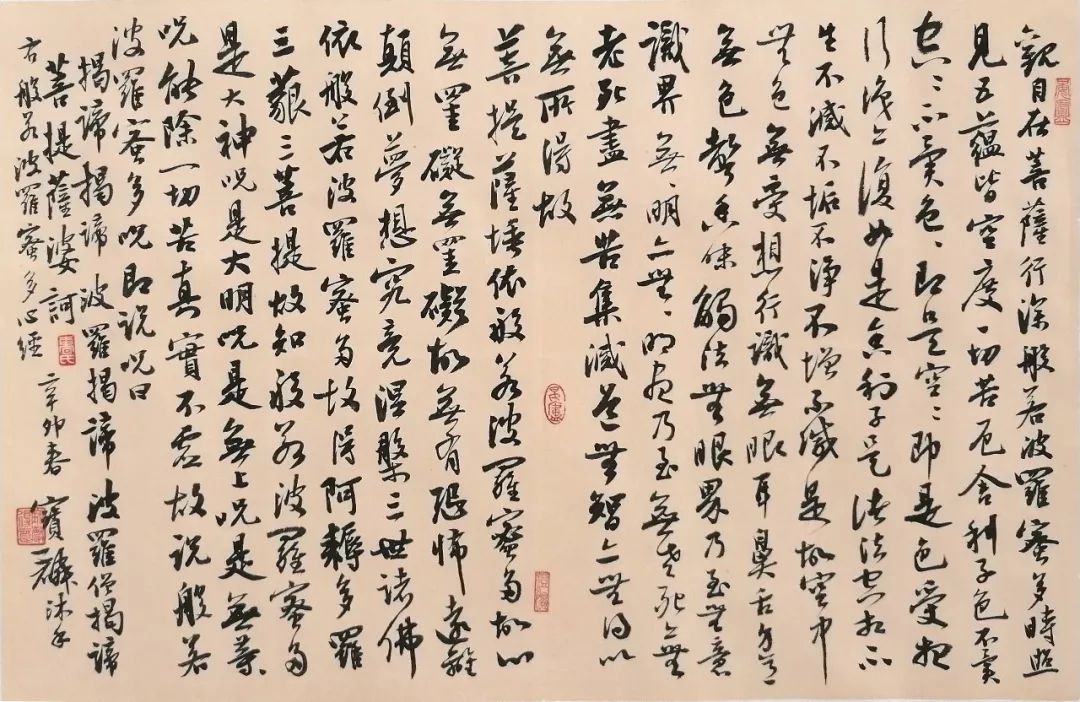 觀自在菩薩行深般若波羅蜜多時照
見五蘊皆空度一切苦厄舍利子色不異
空空不異色色即是空空即是色受想
行識亦復如是舍利子是諸法空相不
生不滅不垢不淨不增不減是故空中
無色無受想行識無眼耳鼻舌身意
無色聲香味觸法無眼界乃至無意
識界無無明亦無無明盡乃至無老死亦無
老死盡無苦集滅道無智亦無得以
無所得故
菩提薩埵依般若波羅蜜多故心
無罣礙無罣礙故無有恐怖遠離
顛倒夢想究竟涅槃三世諸佛
依般若波羅蜜多故得阿耨多羅
三藐三菩提故知般若波羅蜜多
是大神咒是大明咒是無上咒是無等
咒能除一切苦真實不虛故說般若
波羅蜜多咒即說咒曰
揭諦揭諦波羅揭諦波羅僧揭諦
菩提薩婆訶
右般若波羅蜜多心經 辛卯春 寶麟沐手